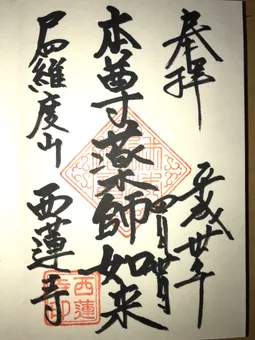 奉拝
平成卅年
四月
本尊薬師如来
尸羅度山
西蓮寺
西蓮
寺印